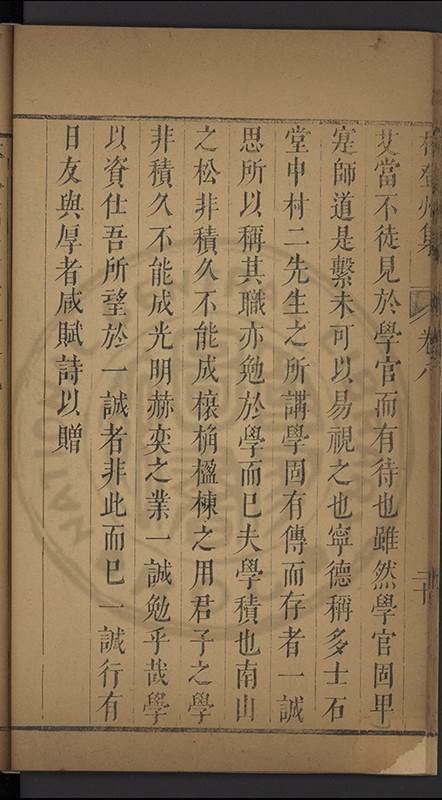 林登州集 卷八 二十
艾當不徒見於學官而有待也雖然學官固卑
寔師道是繫未可以易視之也寧德稱多士石
堂中村二先生之所講學固有傳而存者一誠
思所以稱其職亦勉於學而已夫學積也南山
之松非積久不能成榱桷楹棟之用君子之學
非積久不能成光明赫奕之業一誠勉乎哉學
以資仕吾所望於一誠者非此而已一誠行有
日友與厚者咸賦詩以贈